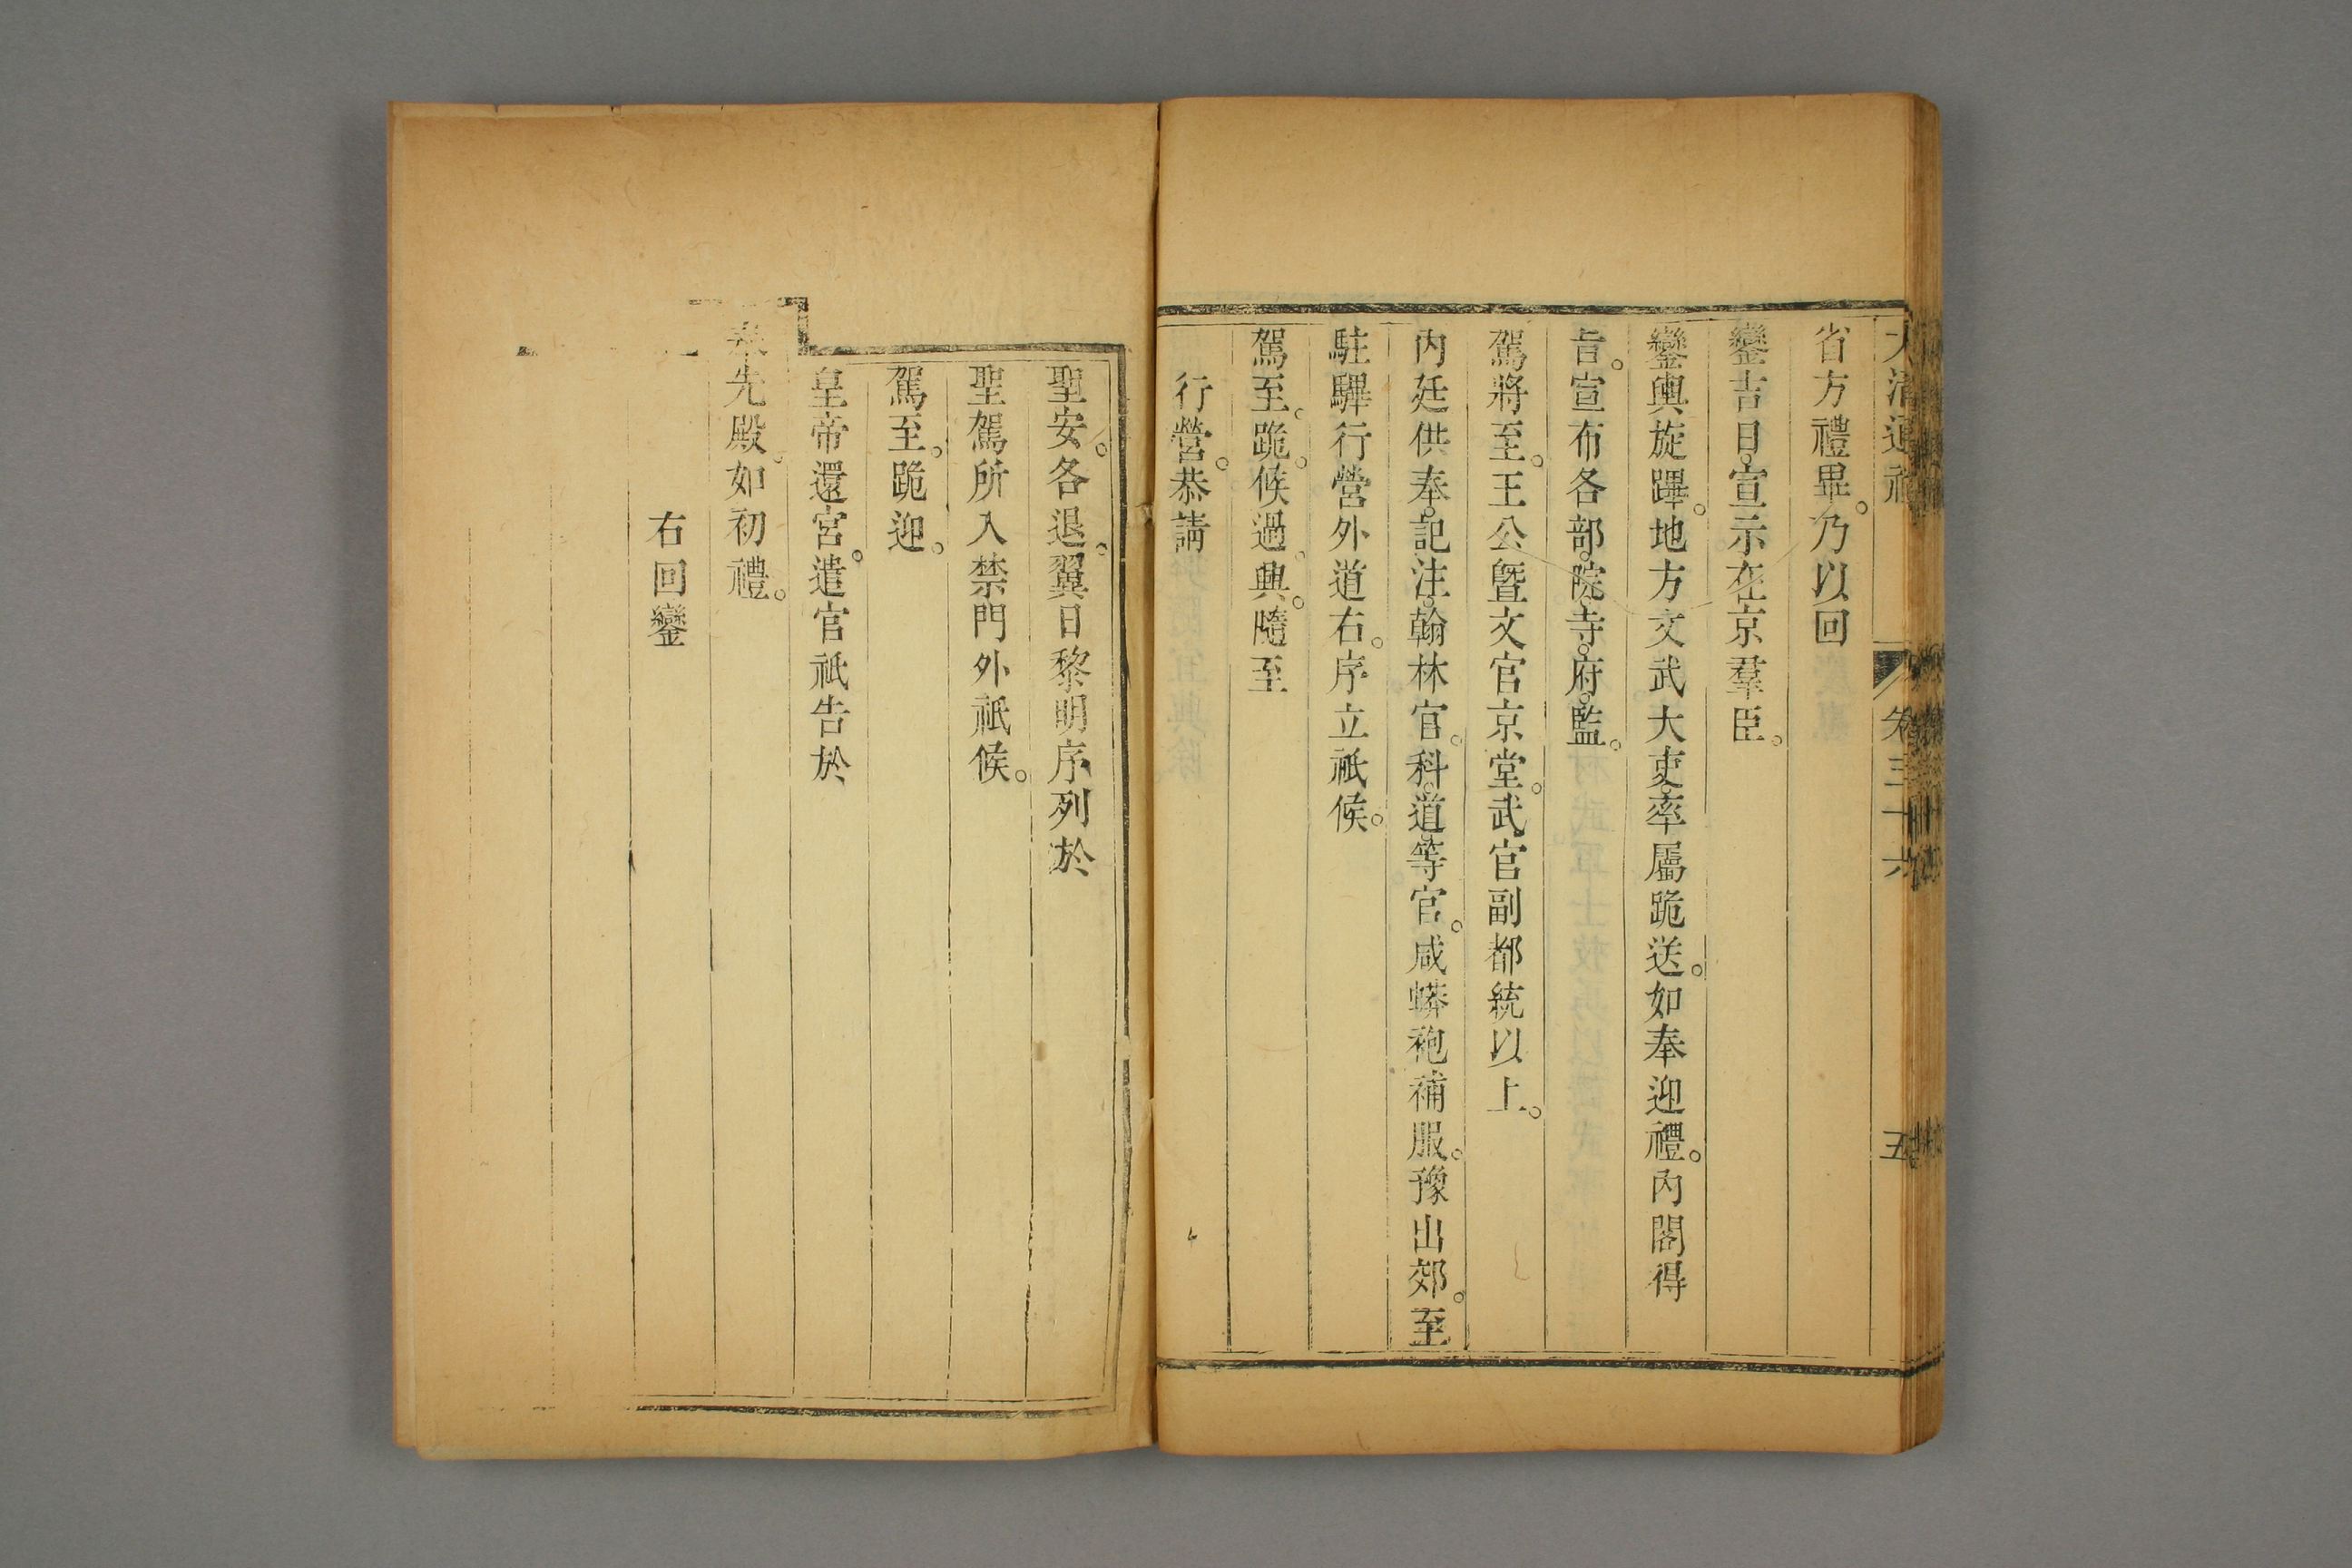 大清通禮 卷三十六 五
省方禮畢。乃以回
鑾吉日。宣示在京羣臣。
鑾輿旋蹕。地方文武大吏。率屬跪送。如奉迎禮。內閣得
旨。宣布各部。院。寺。府。監。
駕將至。王公暨文官京堂。武官副都統以上。
內廷供奉。記注。翰林官。科。道等官。咸蟒袍補服。豫出郊。至
駐驆行營外道右。序立祇候。
駕至。跪。候過。興。隨至
行營。恭請
聖安。各退。翼日黎明序列於
聖駕所入禁門外祇候。
駕至。跪迎。
皇帝還宮。遣官祇告於
奉先殿。如初禮。
右回鑾